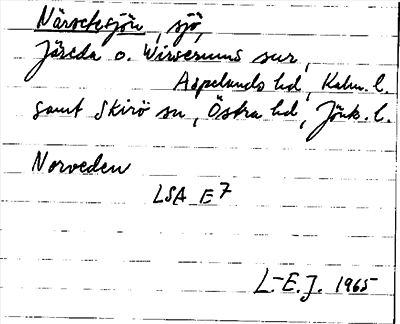 Närvelsjön, sjö,
Järeda o. Wirserums snr,
Aspelands hd, Kalm. l.
samt Skirö sn, Östra hd, Jönk. l.
Norveden
LSA E7
L-E.J. 1965